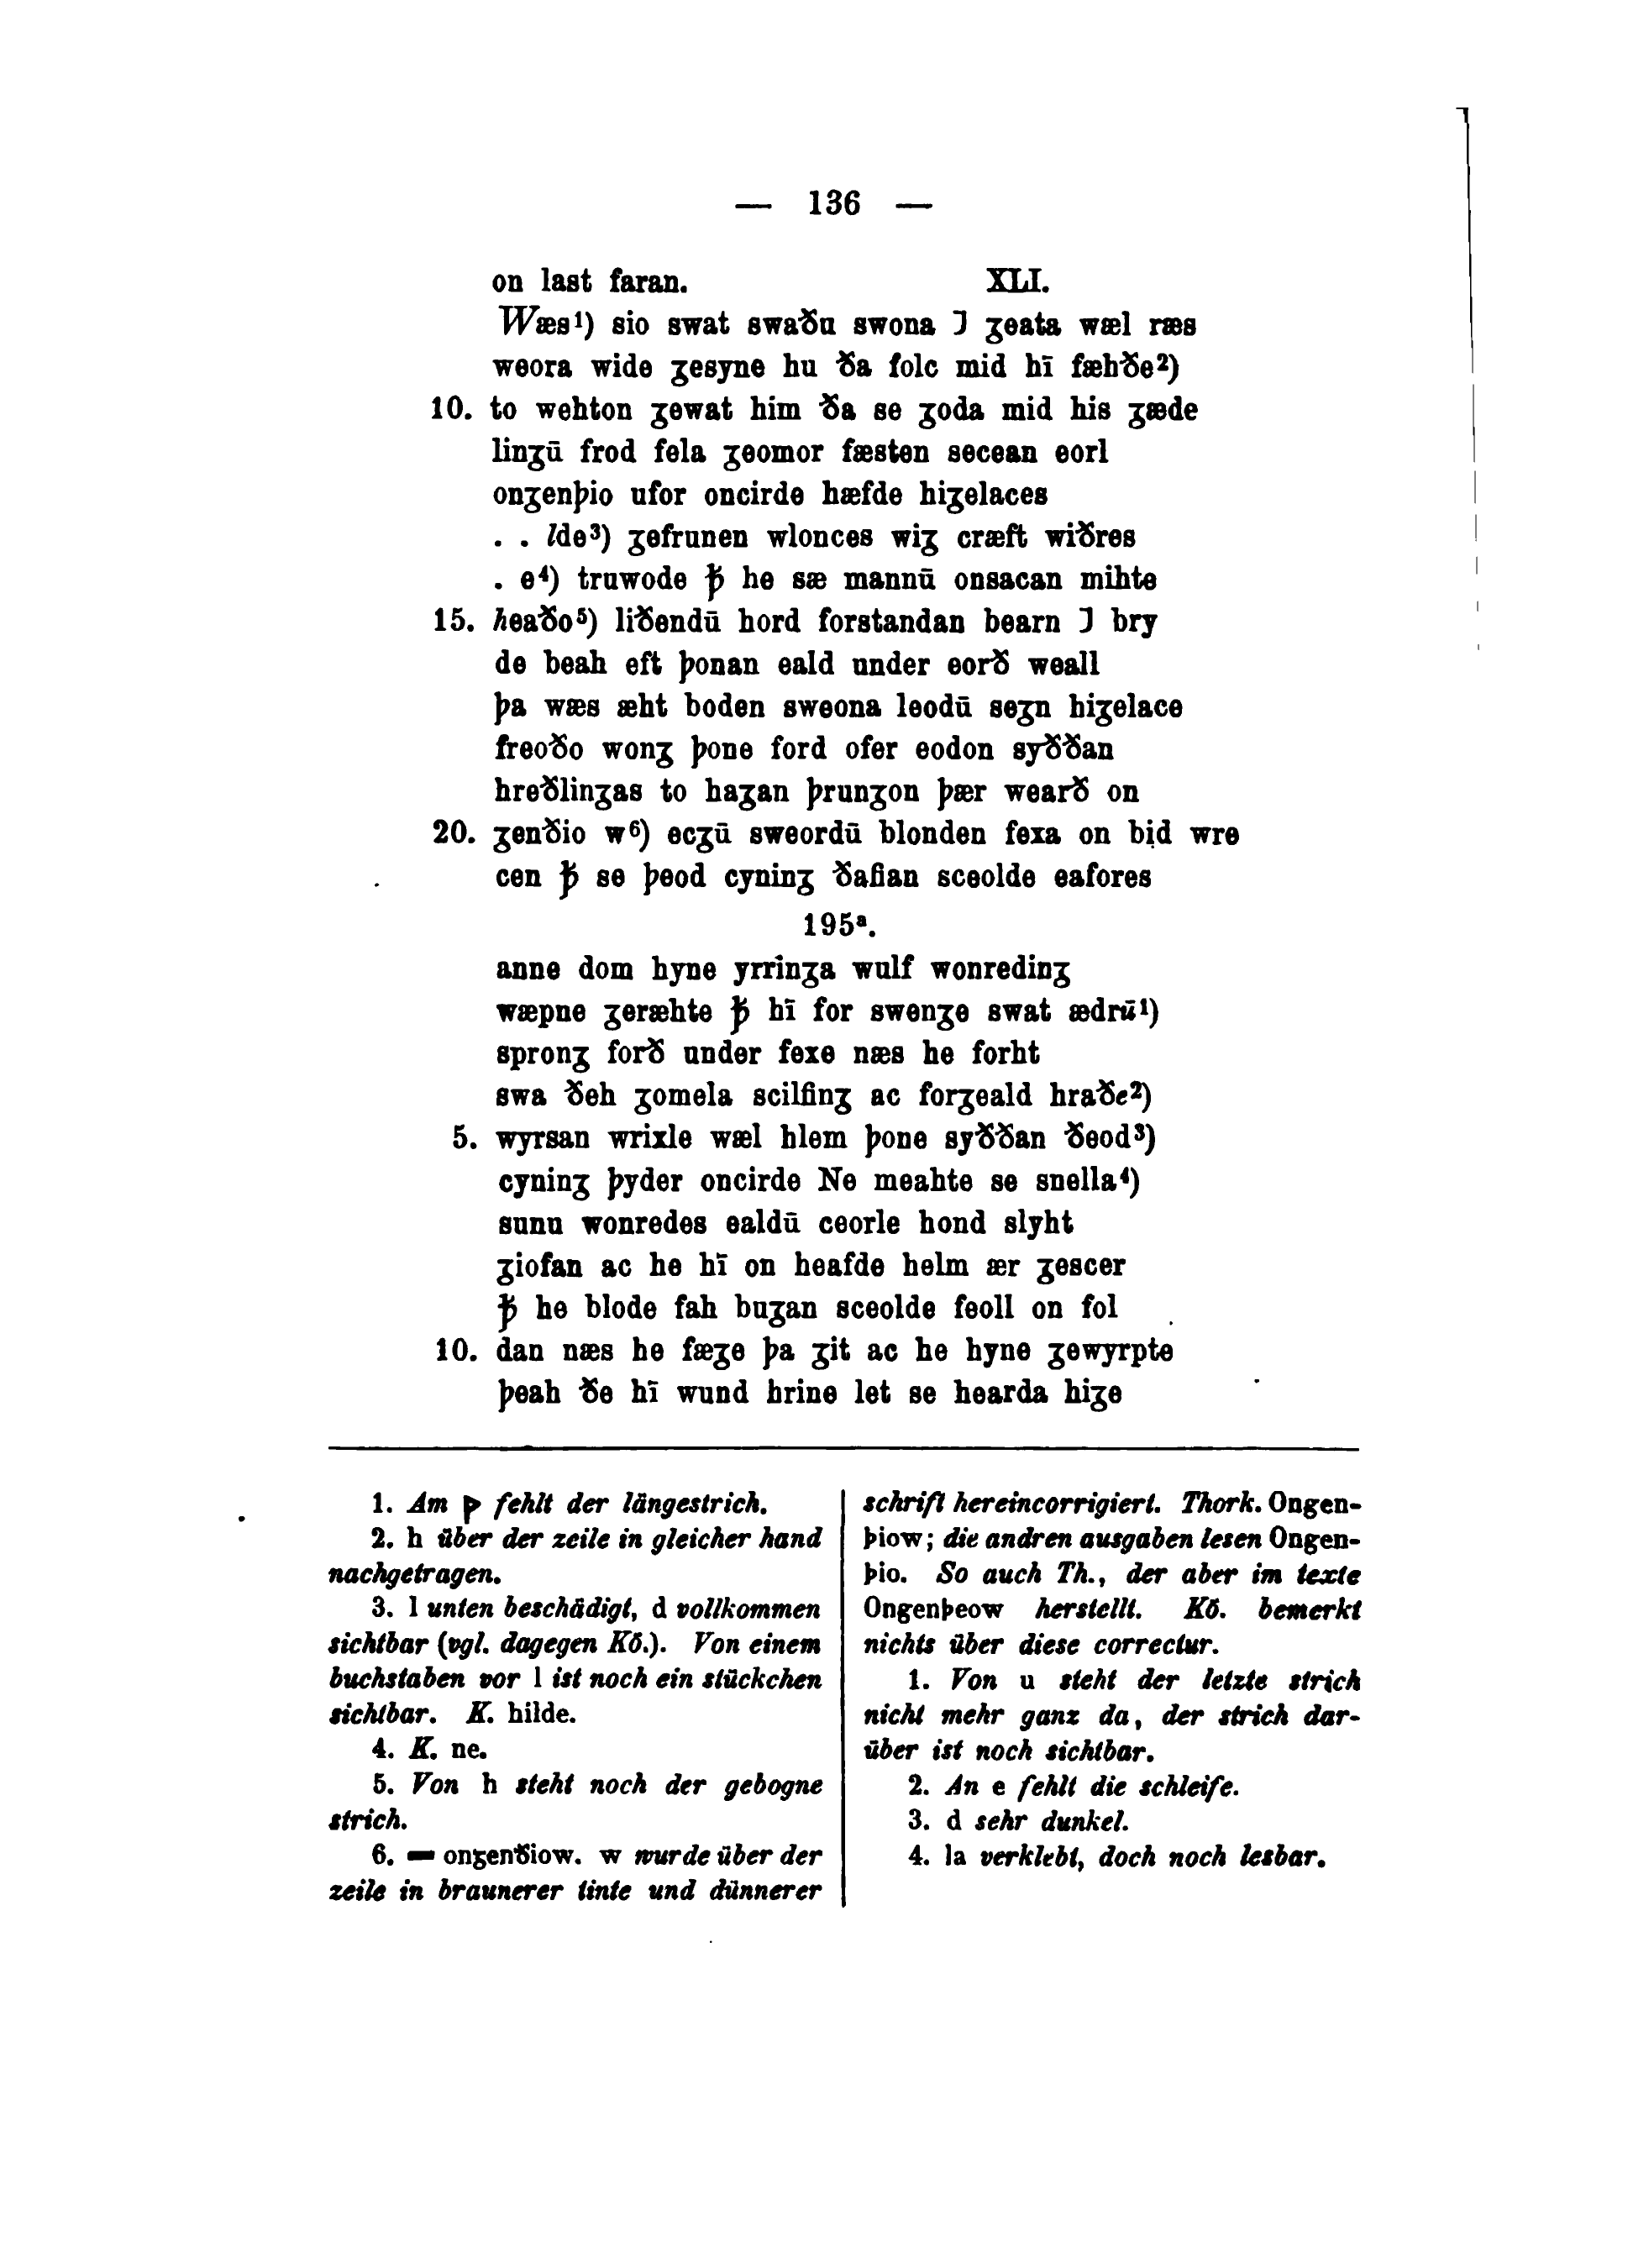 — 136 —
on last faran. XLI.
Wæs¹) sio swat swaðu swona ⁊ ʒeata wæl ræs
weora wide ʒesyne hu ða folc mid hī fæhðe²)
10. to wehton ʒewat him ða se ʒoda mid his ʒæde
linʒū frod fela ʒeomor fæsten secean eorl
onʒenþio ufor oncirde hæfde hiʒelaces
. . lde³) ʒefrunen wlonces wiʒ cræft wiðres
. e⁴) truwode ꝥ he sæ mannū onsacan mihte
15. heaðo⁵) liðendū hord forstandan bearn ⁊ bry
de beah eft þonan eald under eorð weall
þa wæs æht boden sweona leodū seʒn hiʒelace
freoðo wonʒ þone ford ofer eodon syððan
hreðlinʒas to haʒan þrunʒon þær wearð on
20. ʒenðio w⁶) ecʒū sweordū blonden fexa on bịd wre
cen ꝥ se þeod cyninʒ ðafian sceolde eafores
195ª.
anne dom hyne yrrinʒa wulf wonredinʒ
wæpne ʒeræhte ꝥ hī for swenʒe swat ædrū¹)
spronʒ forð under fexe næs he forht
swa ðeh ʒomela scilfinʒ ac forʒeald hraðe²)
5. wyrsan wrixle wæl hlem þone syððan ðeod³)
cyninʒ þyder oncirde Ne meahte se snella⁴)
sunu wonredes ealdū ceorle hond slyht
ʒiofan ac he hī on heafde helm ær ʒescer
ꝥ he blode fah buʒan sceolde feoll on fol
10. dan næs he fæʒe þa ʒit ac he hyne ʒewyrpte
þeah ðe hī wund hrine let se hearda hiʒe
1. Am ƿ fehlt der längestrich.
2. h über der zeile in gleicher hand
nachgetragen.
3. l unten beschädigt, d vollkommen
sichtbar (vgl. dagegen Kö.). Von einem
buchstaben vor l ist noch ein stückchen
sichtbar. K. hilde.
4. K. ne.
5. Von h steht noch der gebogne
strich.
6. = onʒenðiow. w wurde über der
zeile in braunerer tinte und dünnerer
schrift hereincorrigiert. Thork. Ongen-
þiow; die andren ausgaben lesen Ongen-
þio. So auch Th., der aber im texte
Ongenþeow herstellt. Kö. bemerkt
nichts über diese correctur.
1. Von u steht der letzte strich
nicht mehr ganz da, der strich dar-
über ist noch sichtbar.
2. An e fehlt die schleife.
3. d sehr dunkel.
4. la verklebt, doch noch lesbar.